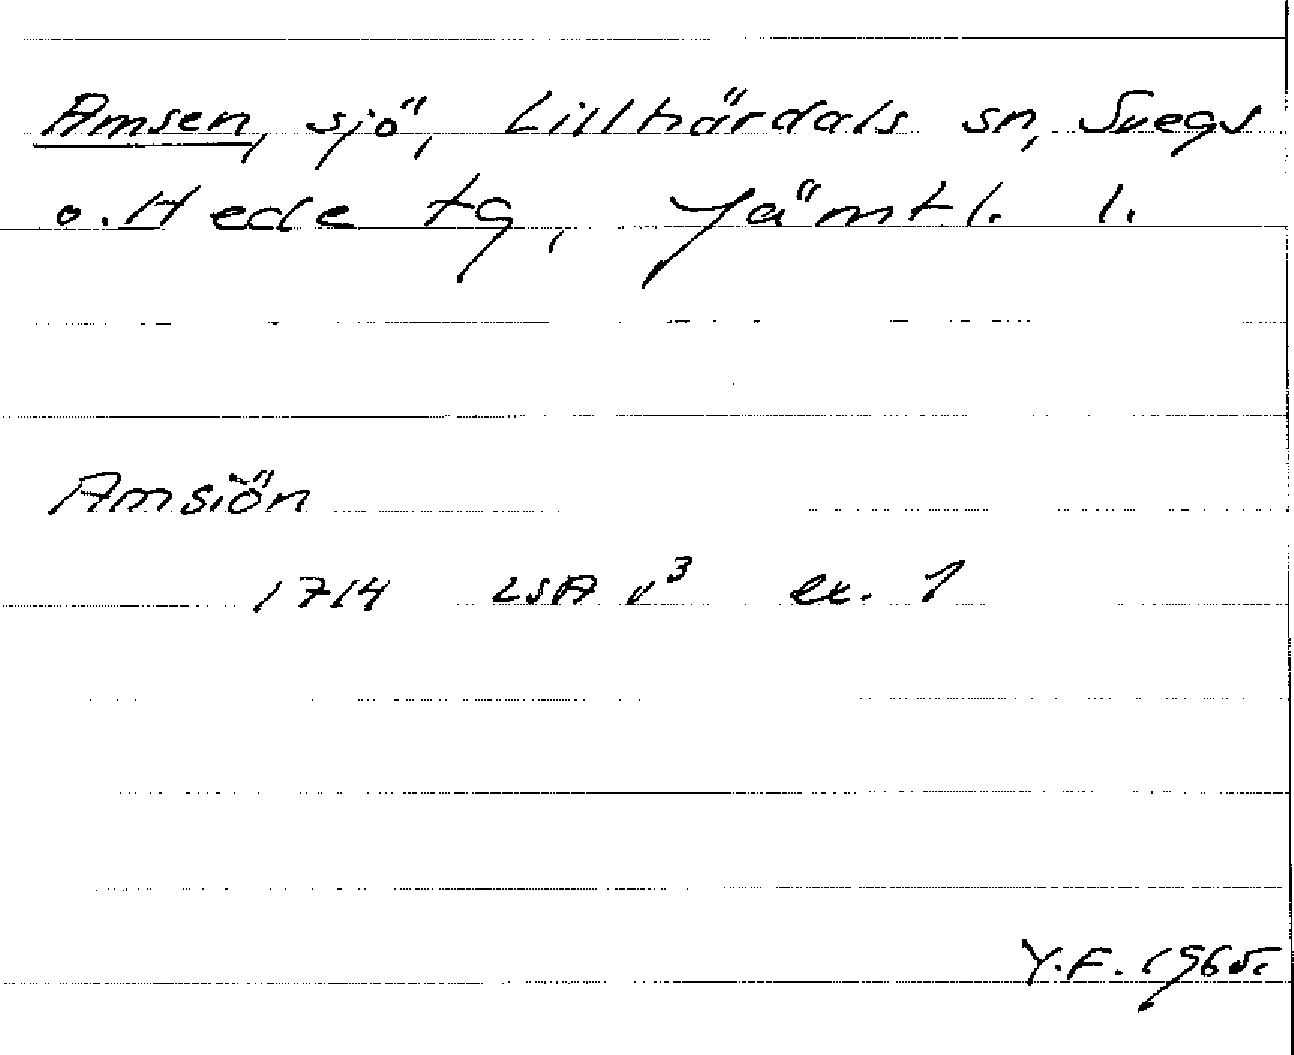 Amsen, sjö, Lillhärdals sn, Svegs
o. Hede tg, Jämtl. l.
Amsiön
1714 LSA v³ ex. 1
Y.F. 1965.